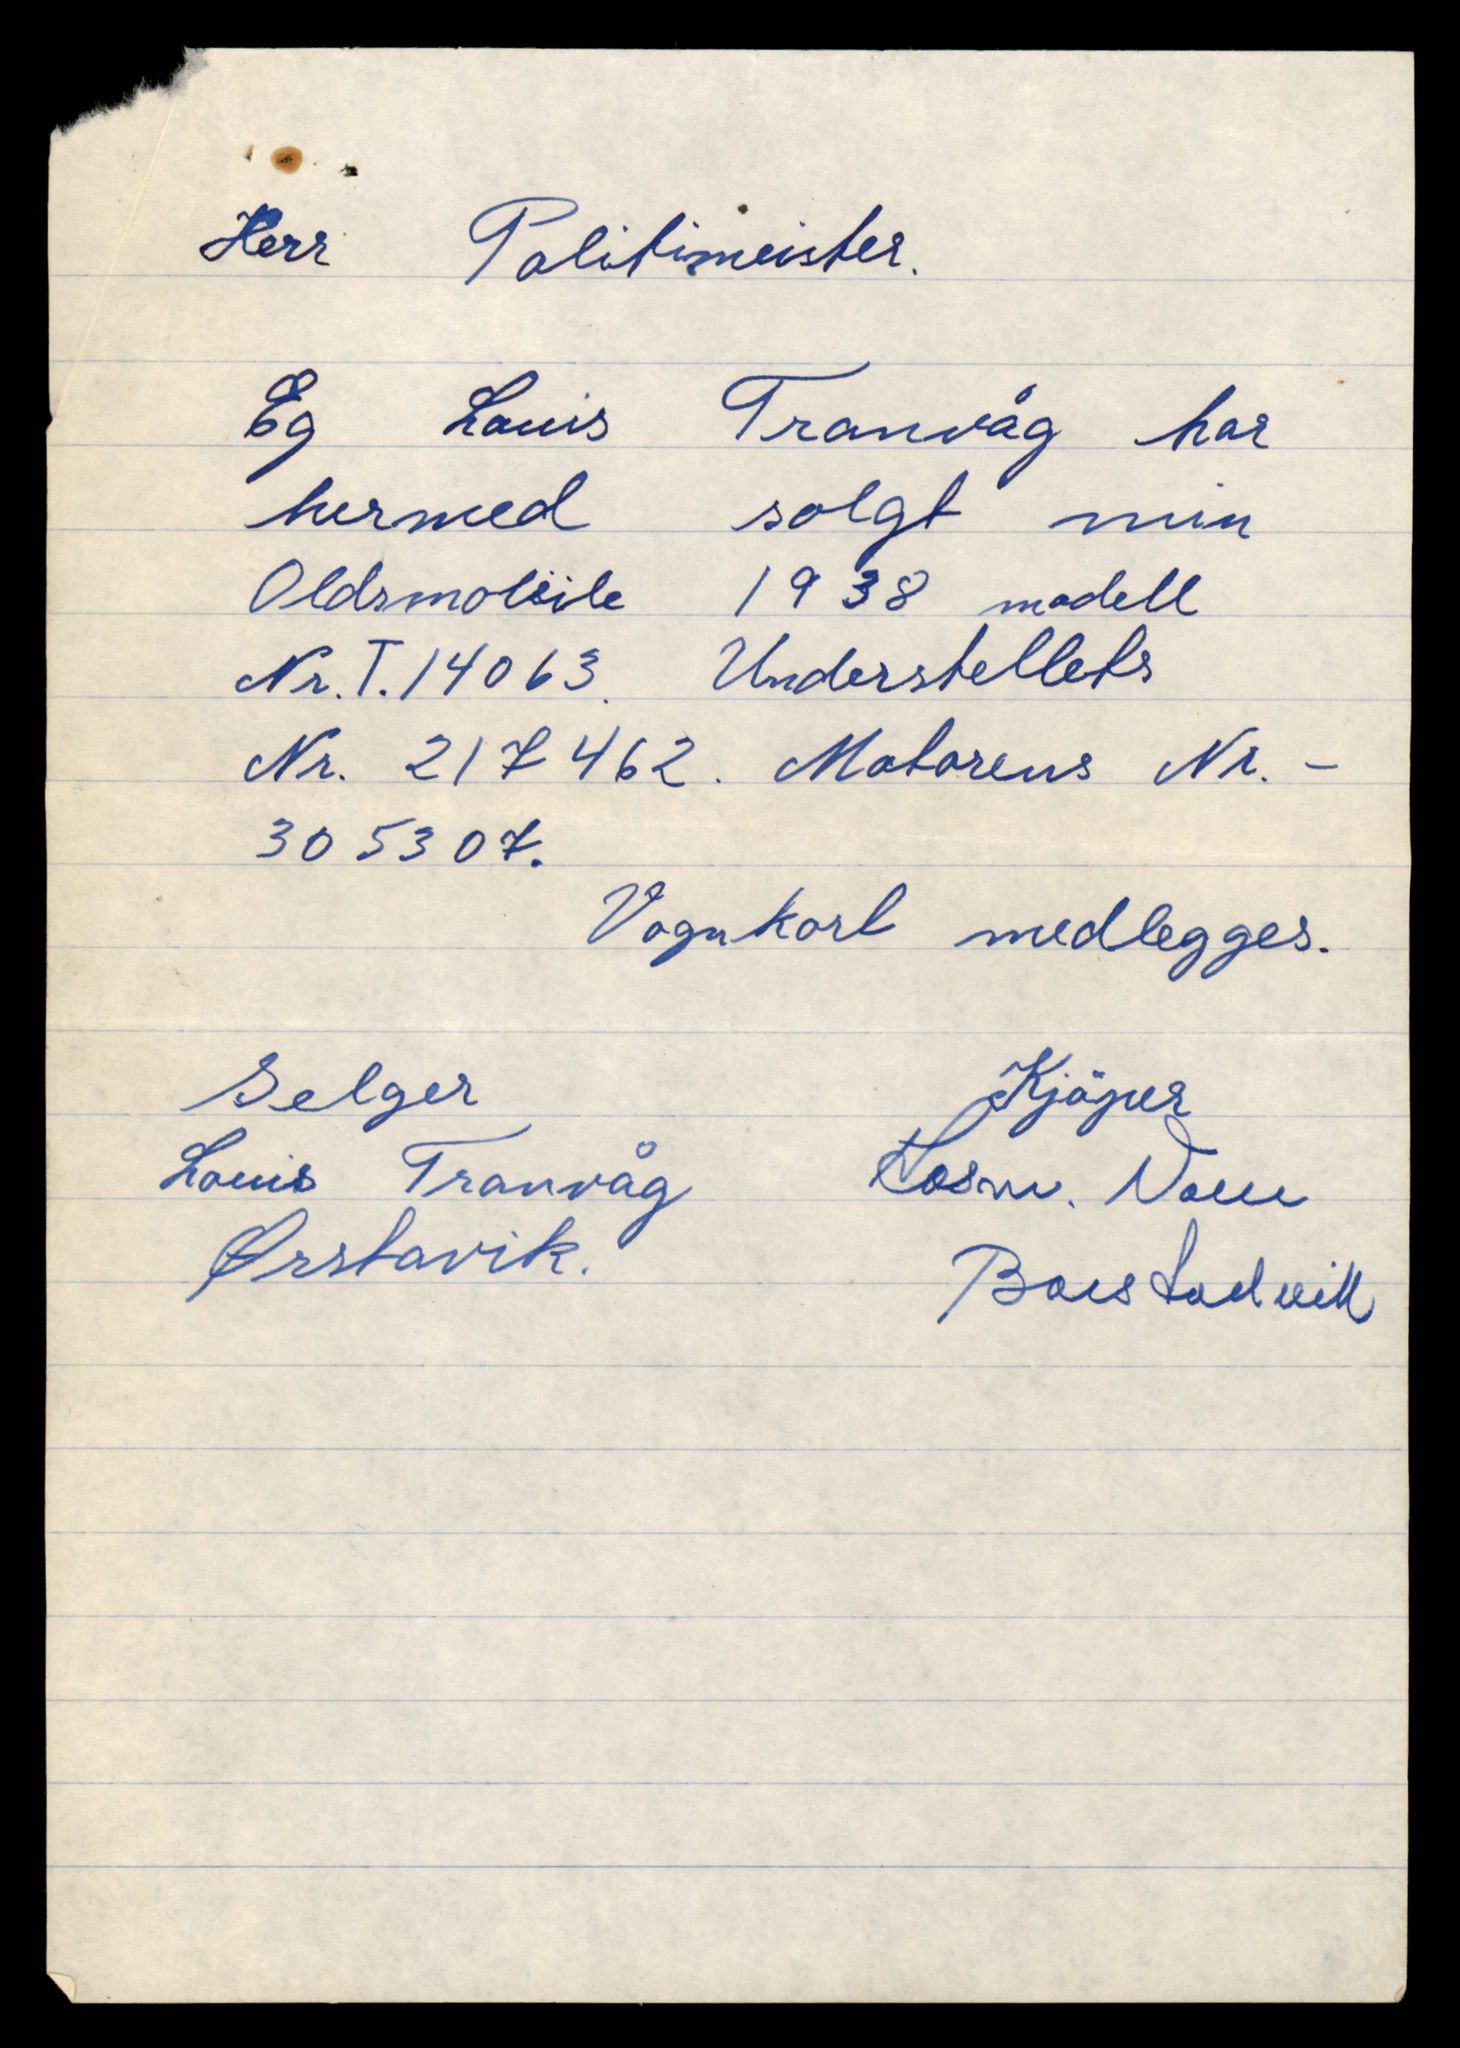 Herr Politimeister.
Eg Louis Tranvåg har
hermed solgt min
Oldsmobile 1938 modell
Nr. T. 14063. Understellets
Nr. 217462. Motorens Nr. -
305307.
Vognkort medlegges.
Selger
Kjöper
Louis Tranvåg
Ørstavik.